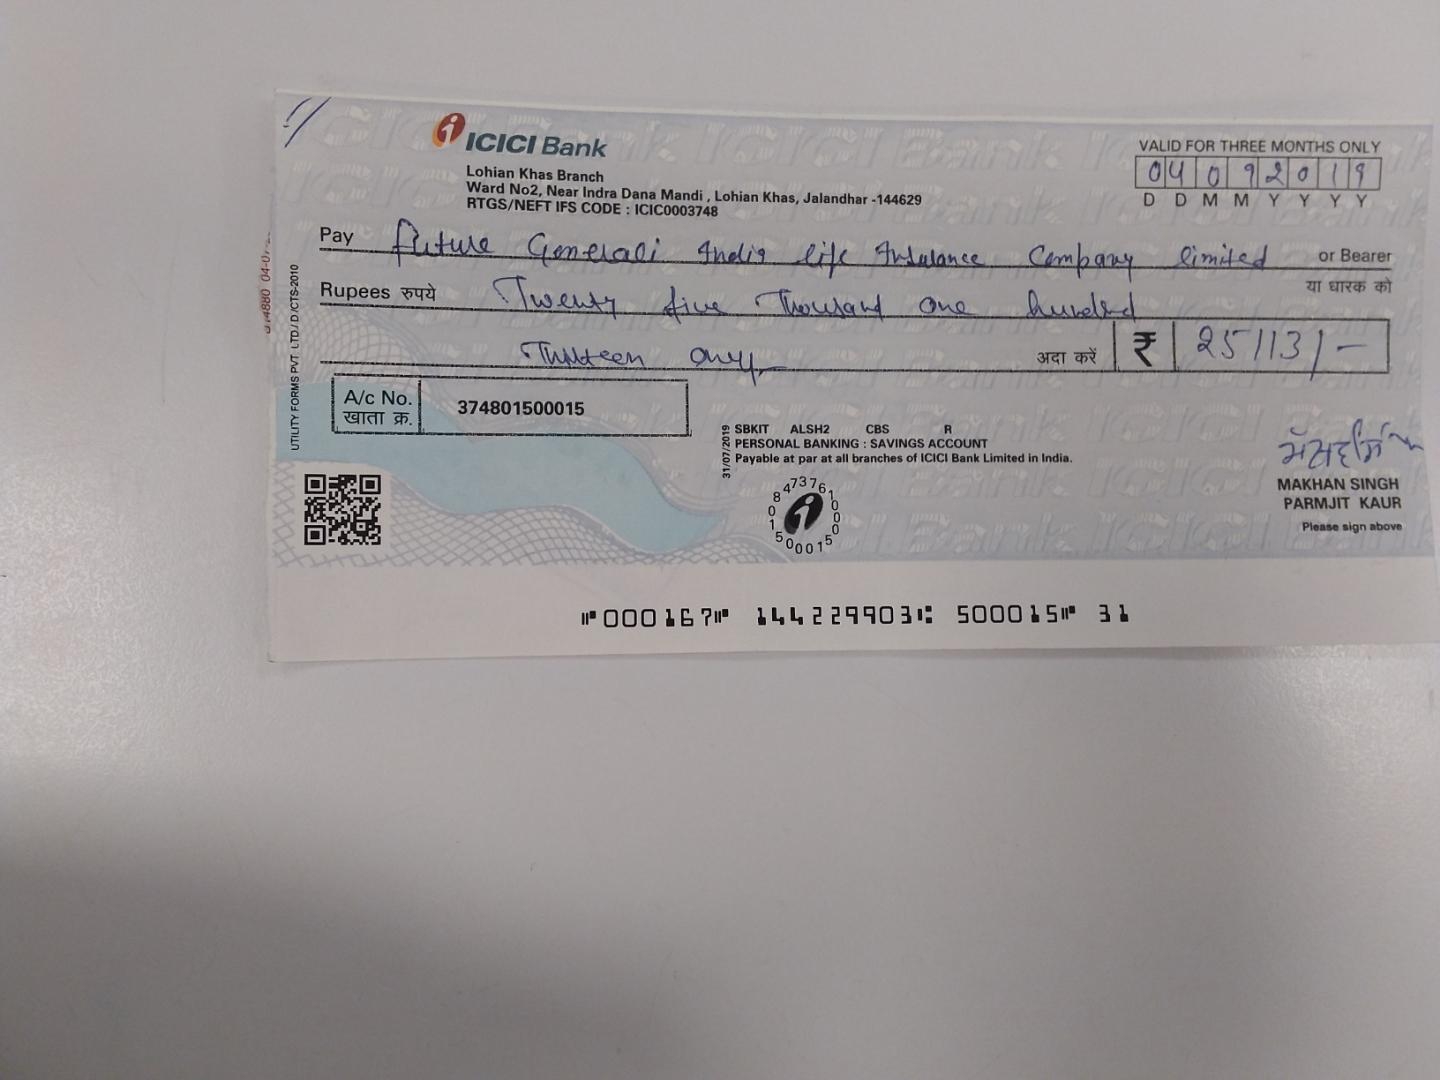 ICICI Bank
Lohian Khas Branch
Ward No2, Near Indra Dana Mandi , Lohian Khas, Jalandhar -144629
RTGS/NEFT IFS CODE : ICIC0003748
VALID FOR THREE MONTHS ONLY
04092019
D D M M Y Y Y Y
Pay Future Generali India life Insurance Company limited or Bearer
या धारक को
Rupees रुपये Twenty five Thousand one hundred
Thirteen only अदा करें ₹ 25113/-
A/c No.
खाता क्र.
374801500015
SBKIT ALSH2 CBS R
PERSONAL BANKING : SAVINGS ACCOUNT
Payable at par at all branches of ICICI Bank Limited in India.
31/07/2019
UTILITY FORMS PVT. LTD / D/CTS-2010
MAKHAN SINGH
PARMJIT KAUR
Please sign above
⑈000167⑈ 144229903⑆ 500015⑈ 31